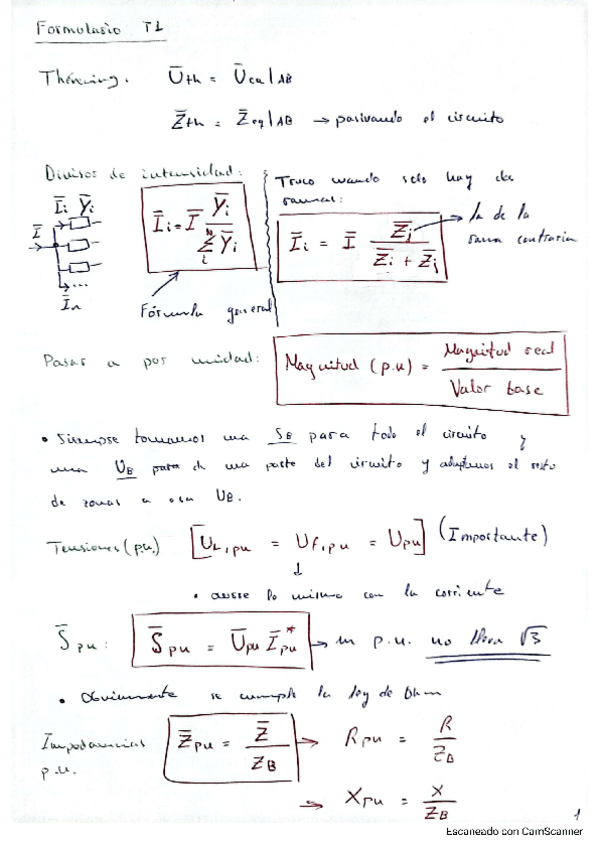 Formulario T1
Thévening. Ūth = Ūca|AB
Z̄th = Z̄eq|AB → pasivando el circuito
Divisor de intensidad:
Truco cuando solo hay dos
ramas:
Īi Ȳi
Ī
Īn
Īi = Ī Ȳi / Σ Ȳi
Fórmula general
Īi = Ī Z̄j / (Z̄i + Z̄j) → la de la
rama contraria
Pasar a por unidad: Magnitud (p.u) = Magnitud real / Valor base
• Siempre tomamos una SB para todo el circuito y
una UB para una parte del circuito y adaptamos el resto
de zonas a esa UB.
Tensiones (p.u.) [UL,pu = Uf,pu = Upu] (Importante)
↓
• lo mismo con la corriente
S̄pu: S̄pu = Ūpu Īpu* → en p.u. no lleva √3
• Obviamente se cumple la ley de Ohm
Impedancias
p.u.
Z̄pu = Z̄ / ZB → Rpu = R / ZB
→ Xpu = X / ZB
1
Escaneado con CamScanner